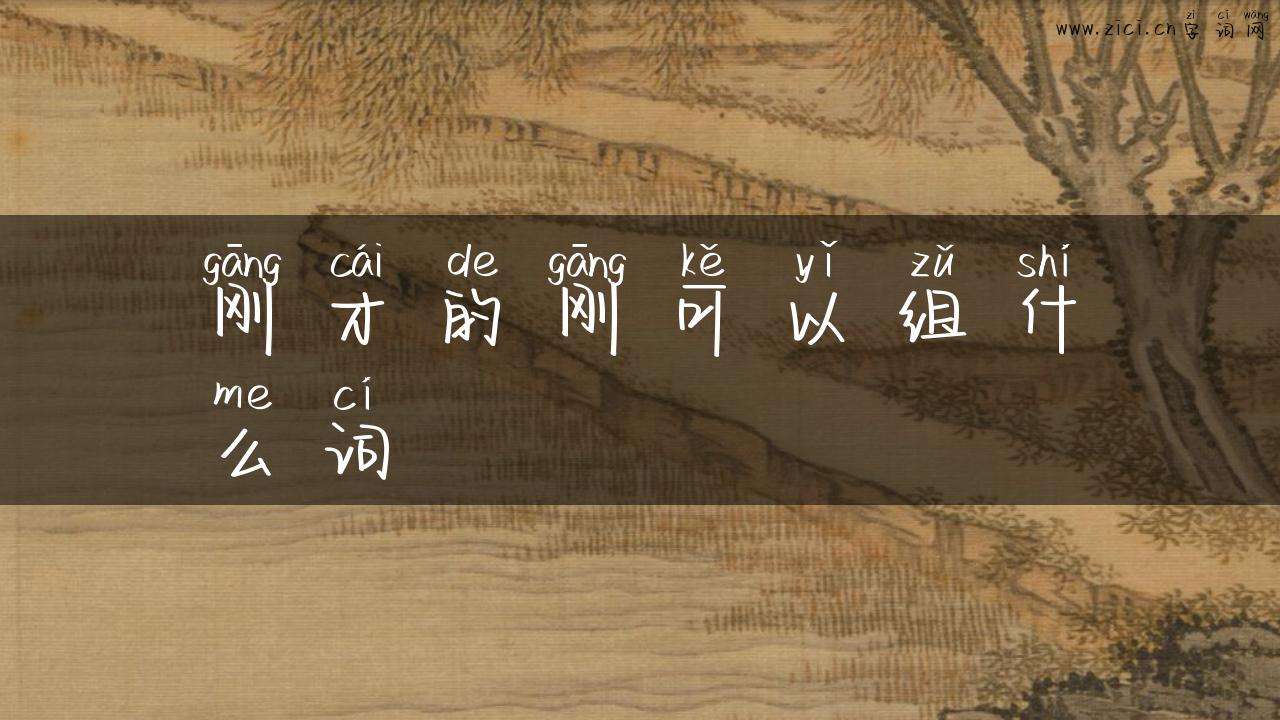 www.zici.cn zì cí wǎng
字词网
gāng cái de gāng kě yǐ zǔ shí
刚才的刚可以组什
me cí
么词